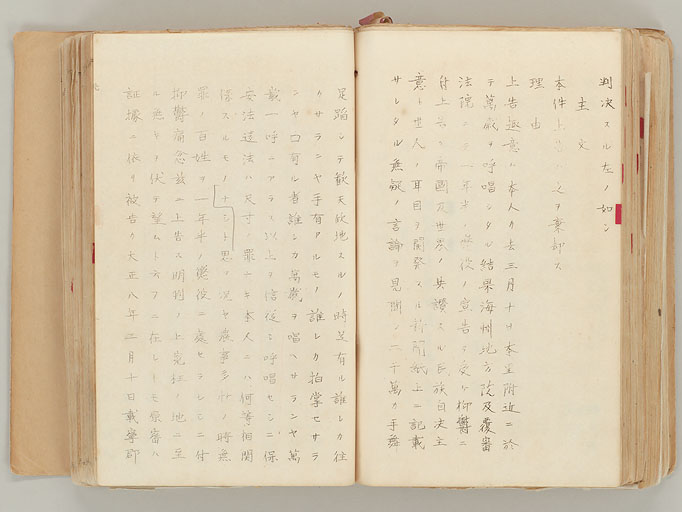 判決スル左ノ如シ
主文
本件上告ハ之ヲ棄却ス
理由
上告趣意ハ本人カ去三月十日本里附近ニ於
テ萬歳ヲ呼唱シタル結果海州地方法院及覆審
法院ニテ一年半ノ懲役ノ宣告ヲ受ケ抑鬱ニ
付上告ス帝國及世界ノ共讃スル民族自決主
意ト世人ノ耳目ヲ開発スル新聞紙上ニ記載
サレタル無疑ノ言論ヲ見聞シ二千萬カ手舞
足蹈シテ歓天欣地スルノ時足有ル誰レカ往
カサランヤ手有アルモノ誰レカ拍掌セサラ
ンヤ口有ル者誰レカ萬歳ヲ唱ヘサランヤ萬
歳一呼ニアラス以上ヲ信従シ呼唱セシニ保
安法違法ハ尺寸ノ罪ナキ本人ニハ何等相関
係スルモノナシト思フ況ヤ農事多忙ノ時無
罪ノ百姓ヲ一年半ノ懲役ニ處セラレシニ付
抑鬱痛忿茲ニ上告ス明判ノ上冤枉ノ地ニ至
ル無キヲ伏テ望ムト云フニ在レトモ原審ハ
証據ニ依リ被告カ大正八年三月十日載寧郡